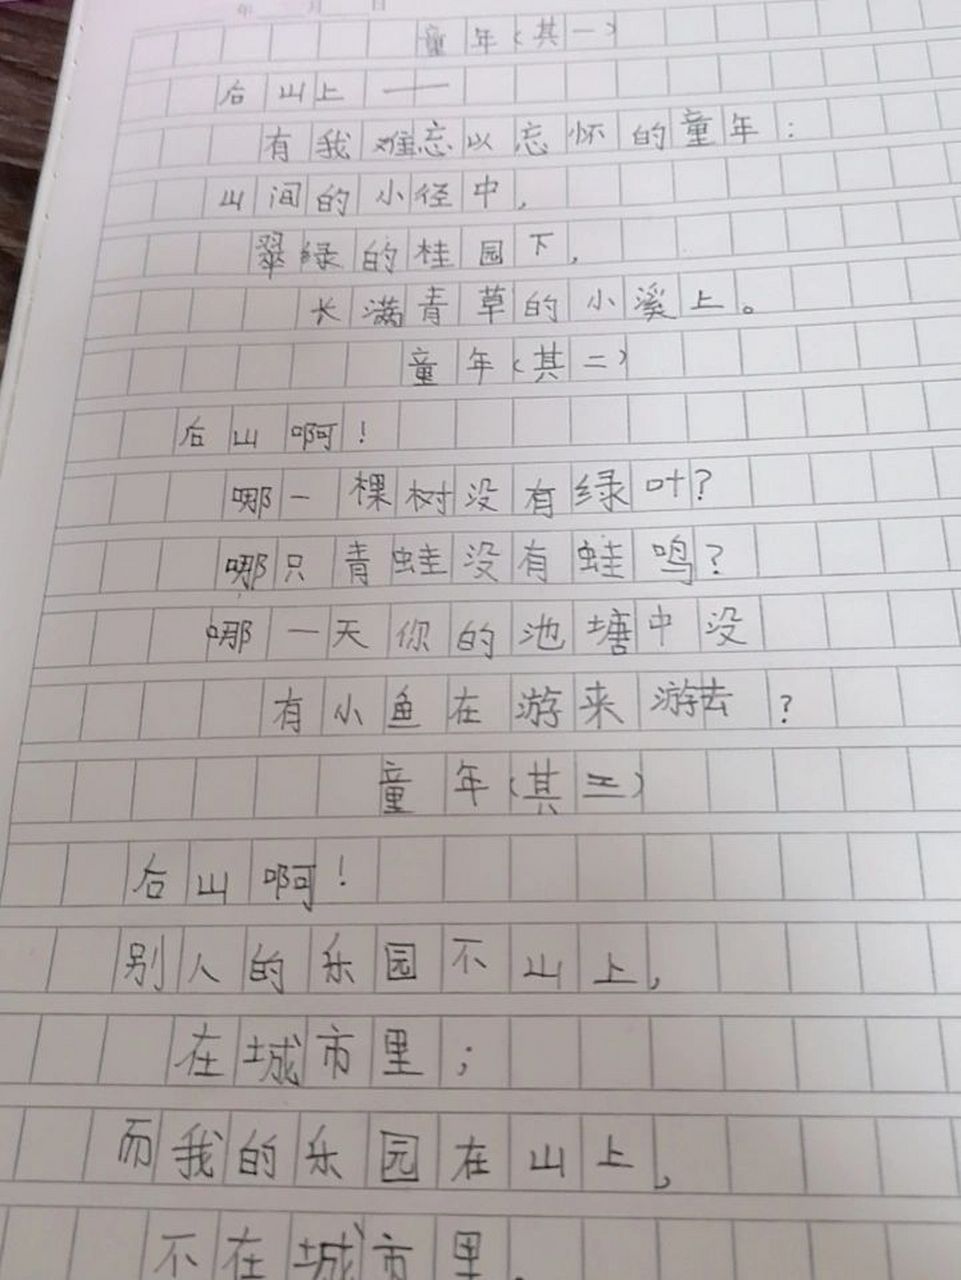 年 月 日
童年(其一)
后山上——
有我难忘以忘怀的童年:
山间的小径中,
翠绿的桂园下,
长满青草的小溪上。
童年(其二)
后山啊!
哪一棵树没有绿叶?
哪只青蛙没有蛙鸣?
哪一天你的池塘中没
有小鱼在游来游去?
童年(其三)
后山啊!
别人的乐园不山上,
在城市里;
而我的乐园在山上,
不在城市里.